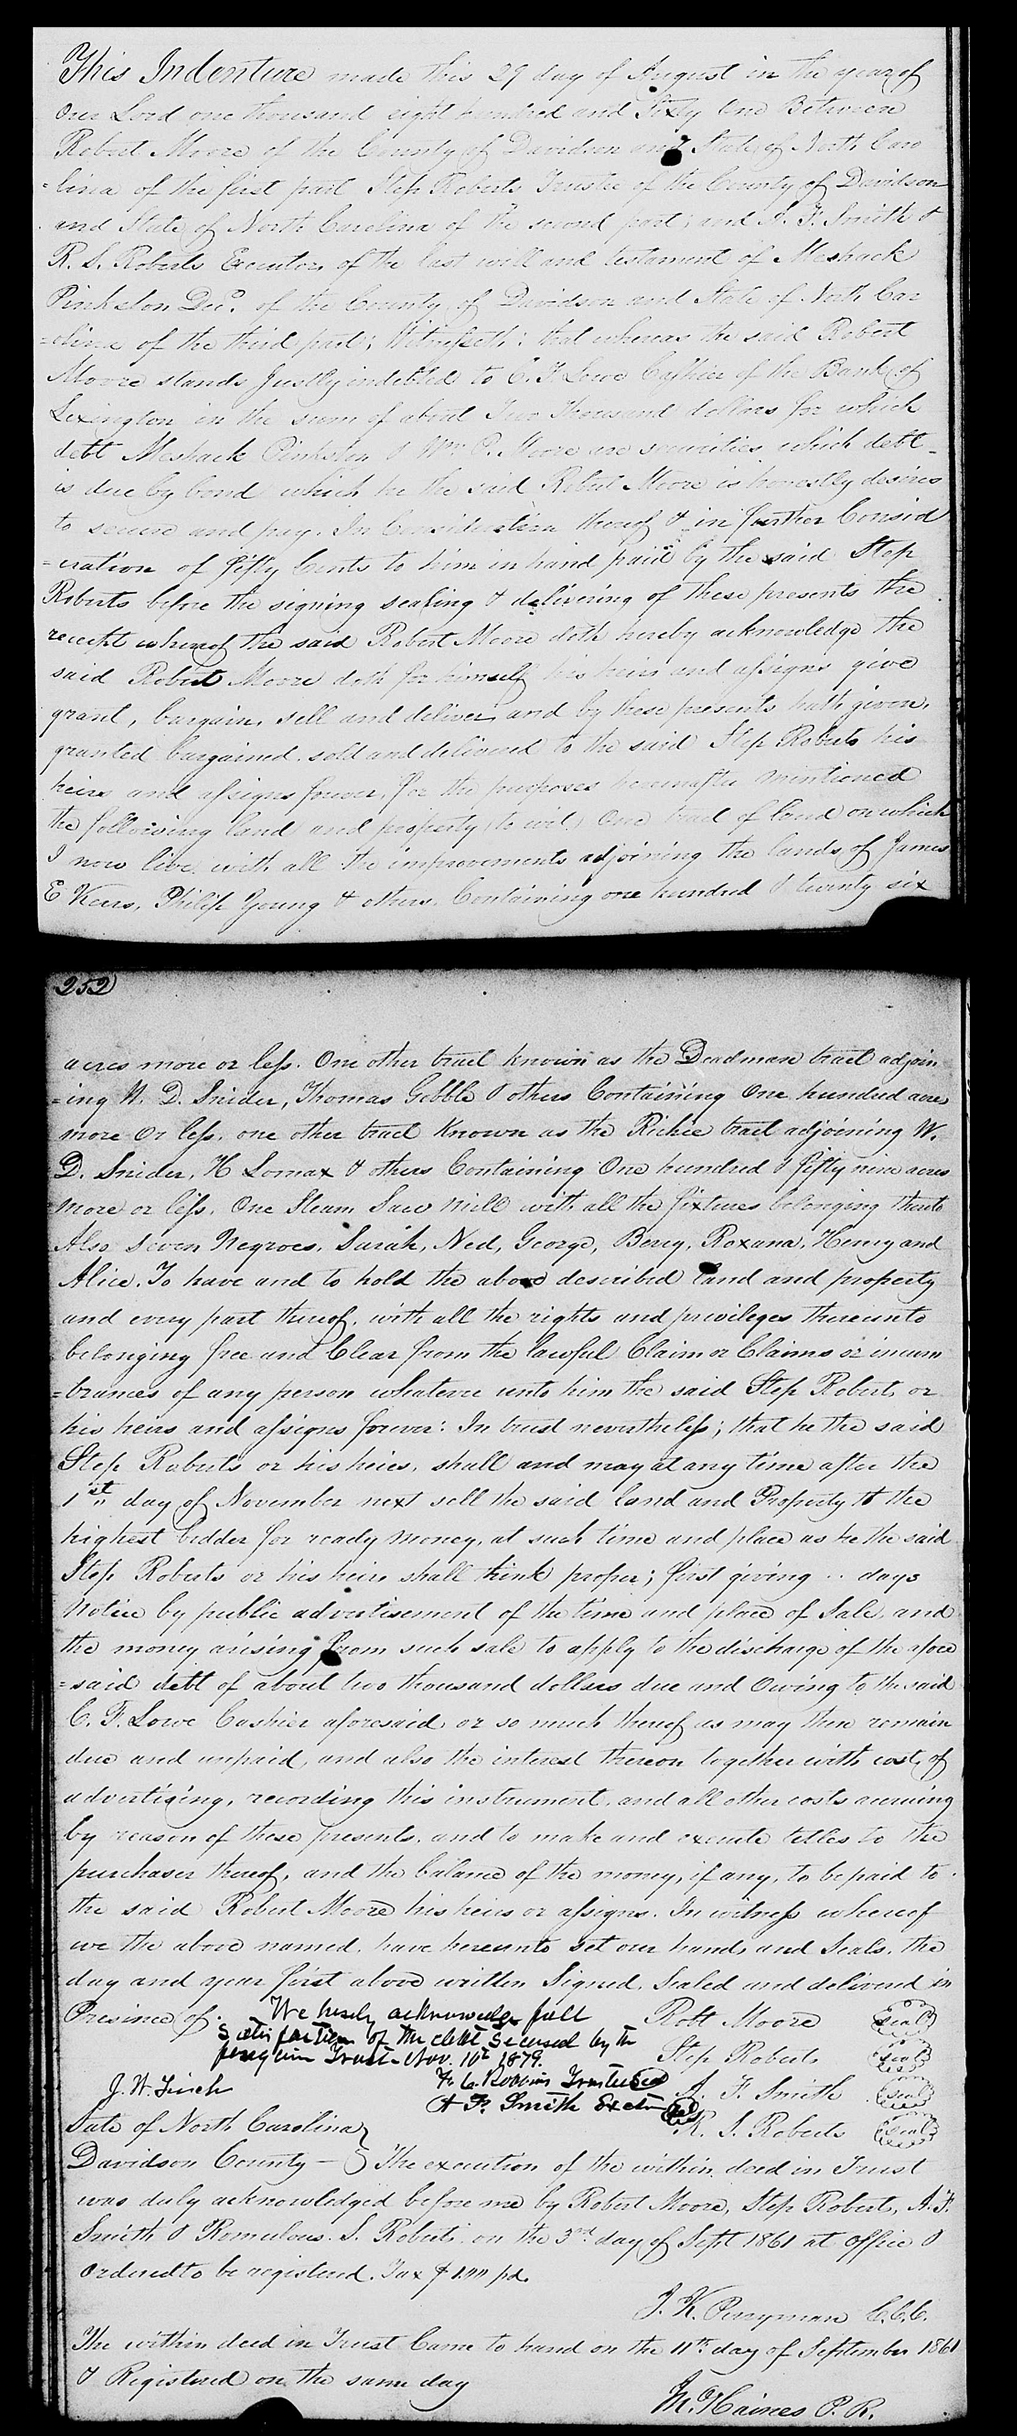 This Indenture made this 29 day of August in the year of
Our Lord one thousand eight hundred and Sixty One Between
Robert Moore of the County of Davidson and State of North Caro
=lina of the first part Step Roberts Trustee of the County of Davidson
and State of North Carolina of the second part; and A. F. Smith &
R. S. Roberts Executors of the last will and testament of Meshack
Pinkston Decd. of the County of Davidson and State of North Car
=olina of the third part; Witnesseth: that whereas the said Robert
Moore stands Justly indebted to C. F. Lowe Cashier of the Bank of
Lexington in the sum of about Two Thousand dollars for which
debt Meshack Pinkston & Wm P. Moore are securities which debt
is due by bond which he the said Robert Moore is honestly desires
to secure and pay. In Consideration thereof & in further Consid
=eration of fifty Cents to him in hand paid by the said Step
Roberts before the signing sealing & delivering of these presents the
receipt whereof the said Robert Moore doth hereby acknowledge the
said Robert Moore doth for himself his heirs and assigns give
grant, bargain, sell and deliver and by these presents hath given,
granted bargained, sold and delivered to the said Step Roberts his
heirs and assigns forever, for the purposes hereinafter mintioned
the following land and property (to wit) One tract of land on which
I now live with all the improvements adjoining the lands of James
E Kers, Philip Young & others. Containing one hundred & twenty six
252
acres more or less. One other tract known as the Deadman tract adjoin
=ing W. D. Snider, Thomas Gobble & others Containing One hundred acres
more Or less. one other tract Known as the Richie tract adjoining W.
D. Snider, H Lomax & others Containing One hundred & fifty nine acres
more or less. One Steam Saw Mill with all the fixtures belonging thereto
Also Seven Negroes. Sarah, Ned, George, Berry, Roxana, Henry and
Alice. To have and to hold the above described land and property
and every part thereof, with all the rights and privileges thereunto
belonging free and Clear from the lawful Claim or Claims or incum
=brances of any person whatever unto him the said Step Roberts or
his heirs and assigns forever: In trust nevertheless; that he the said
Step Roberts or his heirs, shall and may at any time after the
1st day of November next sell the said land and Property to the
highest bidder for ready money, at such time and place as he the said
Step Roberts or his heirs shall think proper; first giving .. days
Notice by public advertisement of the time and place of Sale, and
the money arising from such sale to apply to the discharge of the afore
=said debt of about two thousand dollars due and Owing to the said
C. F. Lowe Cashier aforesaid or so much thereof as may then remain
due and unpaid, and also the interest thereon together with cost of
advertizing, recording this instrument, and all other costs accruing
by reason of these presents, and to make and execute titles to the
purchaser thereof, and the balance of the money, if any, to be paid to
the said Robert Moore his heirs or assigns. In witness whereof
we the above named, have hereunto set our hands and Seals, the
day and year first above written Signed, Sealed and delivered in
Presence of.
We hereby acknowledge full
Satisfaction of the debt secured by the
foregoin Trust. Nov. 10th 1879.
F. C. Robbins Trustee Seal
A F. Smith Exctr Seal
J. W. Finch
Robt Moore seal
Step Roberts seal
A. F. Smith seal
R. S. Roberts seal
State of North Carolina
Davidson County – } The execution of the within deed in Trust
was duly acknowledged before me by Robert Moore, Step Roberts, A. F.
Smith & Romulous. S. Roberts on the 3rd day of Sept 1861 at office &
Ordered to be registered. Tax $ pd.
J. K. Perryman C.C.C.
The within deed in Trust Came to hand on the 11th day of September 1861
& Registered on the same day
M. Haines P. R.